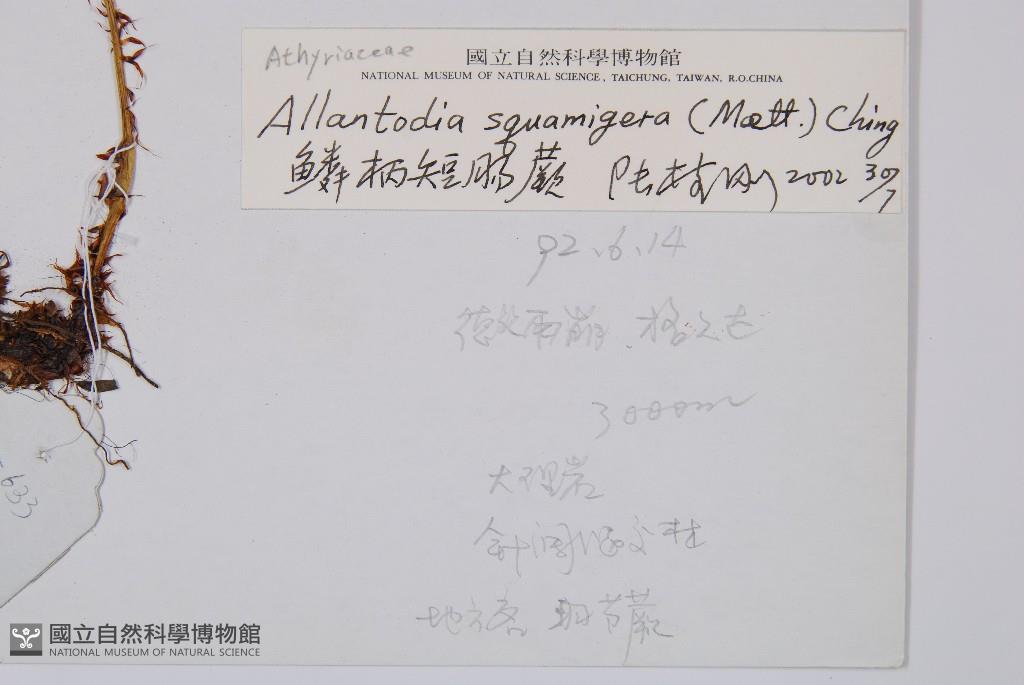 Athyriaceae
國立自然科學博物館
NATIONAL MUSEUM OF NATURAL SCIENCE, TAICHUNG, TAIWAN, R.O.CHINA
Allantodia squamigera (Mett.) Ching
鱗柄短腸蕨 2002 30/7
92.6.14
德欽雨崩
3000m
大理岩
針闊混交林
地方名
633
國立自然科學博物館
NATIONAL MUSEUM OF NATURAL SCIENCE